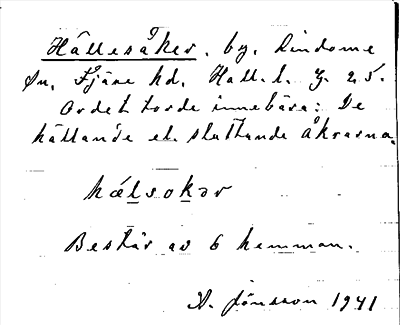 Hällesåker. by. Lindome
sn. Fjäre hd. Hall. l. J. 25.
Ordet torde innebära: De
hällande el. sluttande åkrarna.
hælsokər
Består av 6 hemman.
A. Jönsson 1941